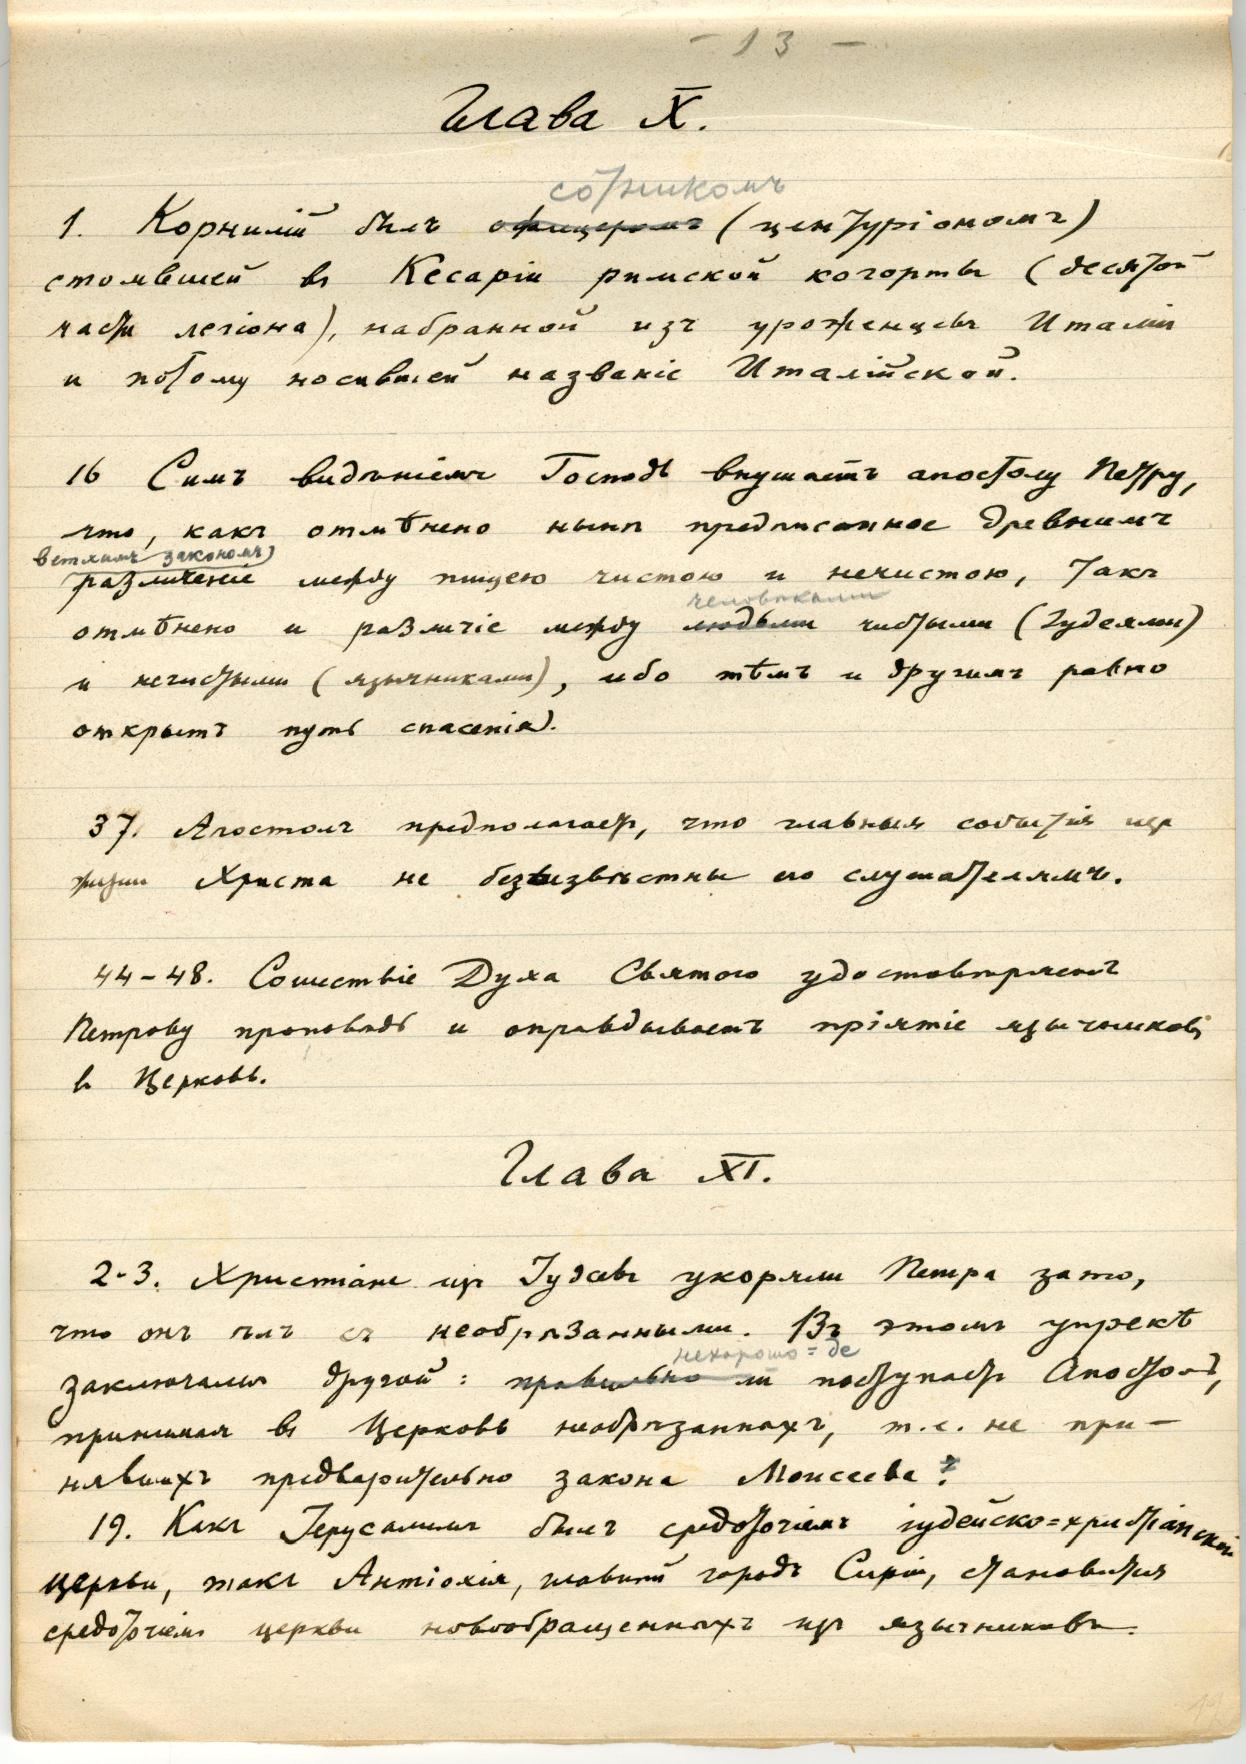 - 13 -
Глава X.
сотникомъ
1. Корнилій былъ офицеромъ (центуріономъ)
стоявшей въ Кесаріи римской когорты (десятой
части легіона), набранной изъ уроженцевъ Италіи
и потому носившей названіе Италійской.
16 Симъ видѣніемъ Господь внушаетъ апостолу Петру,
что, какъ отмѣнено нынѣ предписанное древнимъ
ветхимъ закономъ
различеніе между пищею чистою и нечистою, такъ
человѣками
отмѣнено и различіе между людьми чистыми (Іудеями)
и нечистыми (язычниками), ибо тѣмъ и другимъ равно
открытъ путь спасенія).
37. Апостолъ предполагаетъ, что главныя событія изъ
жизни Христа не безъизвѣстны его слушателямъ.
44-48. Сошествіе Духа Святого удостовѣряетъ
Петрову проповѣдь и оправдываетъ пріятіе язычниковъ
въ Церковь.
Глава XI.
2-3. Христіане изъ Іудеевъ укоряли Петра за то,
что онъ ѣлъ съ необрѣзанными. Въ этомъ упрекѣ
нехорошо=де
заключался другой: правильно ли поступаетъ Апостолъ,
принимая въ Церковь необрѣзанныхъ, т.е. не при-
нявшихъ предварительно закона Моисеева?
19. Какъ Іерусалимъ былъ средоточіемъ іудейско=христіанской
церкви, такъ Антіохія, главный городъ Сиріи, становится
средоточіемъ церкви новообращенныхъ изъ язычниковъ.